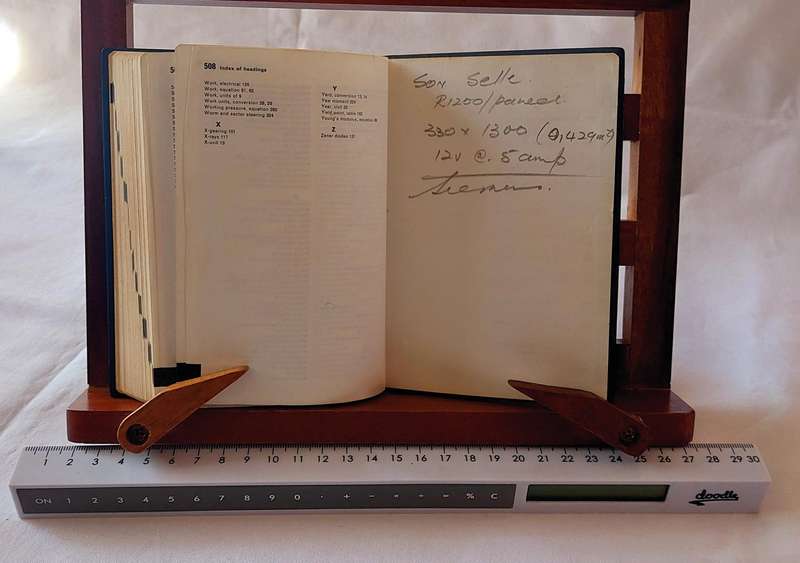 508 Index of headings
Work, electrical
Work, equation 81, 82
Work, units of 9
Work units, conversion
Working pressure, equation
Worm and sector steering
X
X-gearing
X-rays 117
X-unit 13
Y
Yard, conversion 13, 14
Yaw moment
Year, civil
Yield point, table
Young's modulus,
Z
Zener diodes
Son Selle.
R1200/paneel.
330 x 1300 (0,429m²)
12v @. 5 amp
Siemens.
1 2 3 4 5 6 7 8 9 10 11 12 13 14 15 16 17 18 19 20 21 22 23 24 25 26 27 28 29 30
ON 1 2 3 4 5 6 7 8 9 0 · + − × ÷ % C
doodle